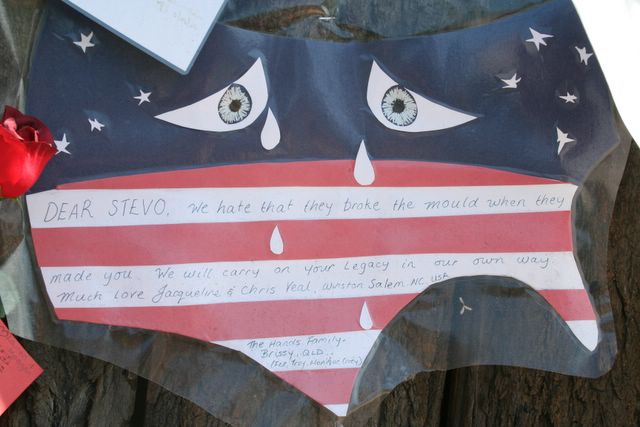 DEAR STEVO, We hate that they broke the mould when they
made you. We will carry on your Legacy in our own way.
Much Love Jacqueline & Chris Veal, Winston Salem, NC USA
The Hands Family-
Brissy, QLD